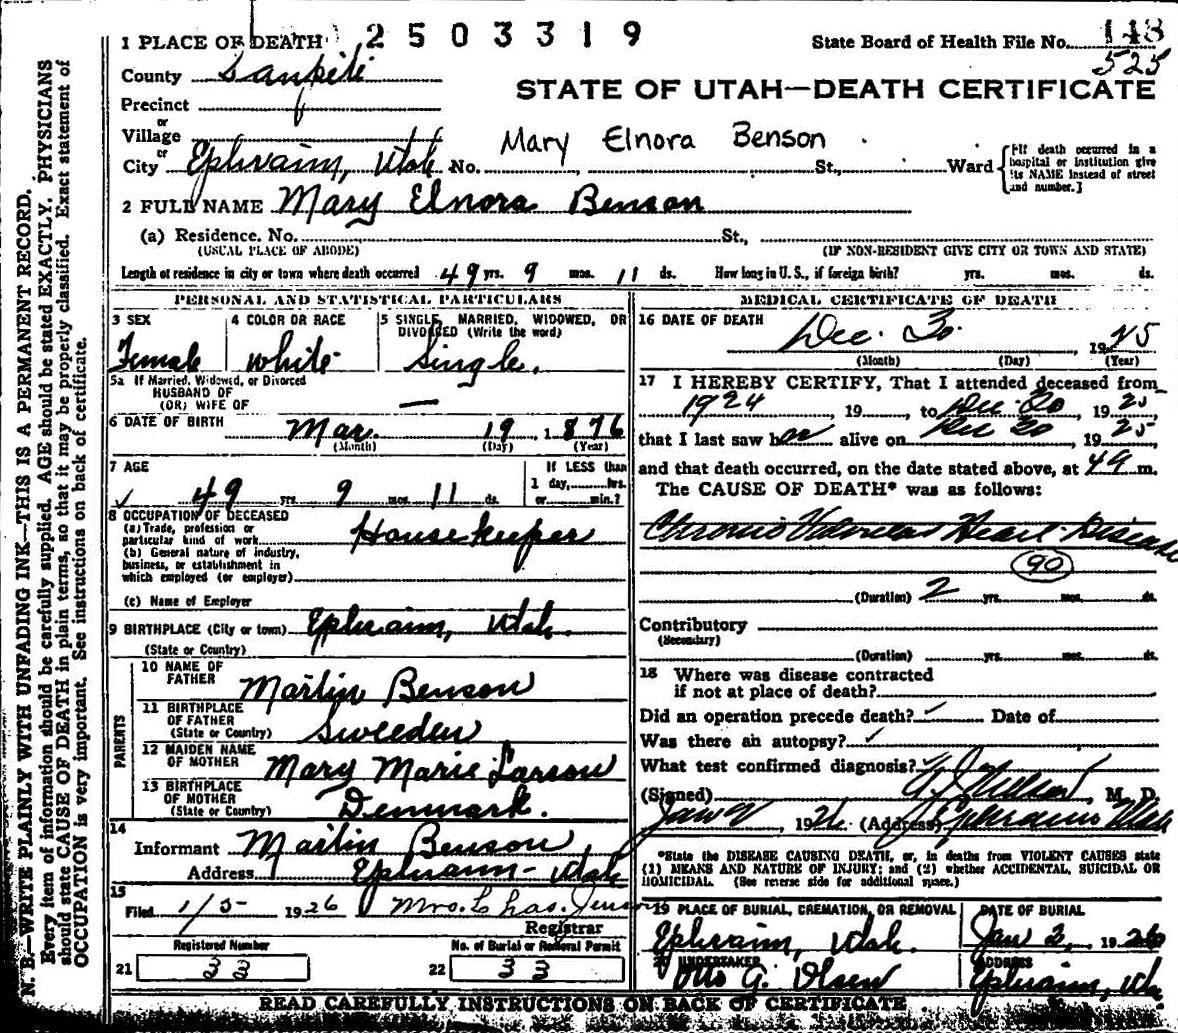 1 PLACE OF DEATH 2503319 State Board of Health File No. 148
County Sanpete 525
STATE OF UTAH—DEATH CERTIFICATE
Precinct
or
Village
or
Mary Elnora Benson
City Ephraim, Utah No. St., Ward
{If death occurred in a hospital or institution give its NAME instead of street and number.}
2 FULL NAME Mary Elnora Benson
(a) Residence. No. St.,
(USUAL PLACE OF ABODE) (IF NON-RESIDENT GIVE CITY OR TOWN AND STATE)
Length of residence in city or town where death occurred 49 yrs. 9 mos. 11 ds. How long in U. S., if foreign birth? yrs. mos. ds.
PERSONAL AND STATISTICAL PARTICULARS
3 SEX
Female
4 COLOR OR RACE
White
5 SINGLE, MARRIED, WIDOWED, OR DIVORCED (Write the word)
Single.
5a If Married, Widowed, or Divorced
HUSBAND OF
(OR) WIFE OF —
6 DATE OF BIRTH Mar. 19, 1876
(Month) (Day) (Year)
7 AGE
49 yrs. 9 mos. 11 ds.
If LESS than
1 day, hrs.
or min.?
8 OCCUPATION OF DECEASED
(a) Trade, profession or
particular kind of work Housekeeper
(b) General nature of industry,
business, or establishment in
which employed (or employer)
(c) Name of Employer
9 BIRTHPLACE (City or town) Ephraim, Utah.
(State or Country)
PARENTS
10 NAME OF FATHER Martin Benson
11 BIRTHPLACE OF FATHER
(State or Country) Sweeden
12 MAIDEN NAME OF MOTHER Mary Marie Larson
13 BIRTHPLACE OF MOTHER
(State or Country) Denmark.
14
Informant Martin Benson
Address Ephraim - Utah
15
Filed 1/5- 1926 Mrs. Chas. Jensen
Registrar
Registered Number No. of Burial or Removal Permit
21 33 22 33
MEDICAL CERTIFICATE OF DEATH
16 DATE OF DEATH
Dec. 30. 1925
(Month) (Day) (Year)
17 I HEREBY CERTIFY, That I attended deceased from
1924, 19 , to Dec 20, 1925
that I last saw her alive on Dec 20, 1925
and that death occurred, on the date stated above, at m.
The CAUSE OF DEATH* was as follows:
Chronic Valvular Heart Disease
90
(Duration) 2 yrs. mos. ds.
Contributory
(Secondary)
(Duration) yrs. mos. ds.
18 Where was disease contracted
if not at place of death?
Did an operation precede death? Date of
Was there an autopsy?
What test confirmed diagnosis?
(Signed) M. D.
Jan 1926 (Address) Ephraim Utah
*State the DISEASE CAUSING DEATH, or, in deaths from VIOLENT CAUSES state
(1) MEANS AND NATURE OF INJURY; and (2) whether ACCIDENTAL, SUICIDAL OR
HOMICIDAL. (See reverse side for additional space.)
19 PLACE OF BURIAL, CREMATION, OR REMOVAL
Ephraim, Utah.
DATE OF BURIAL
Jan 2, 1926
20 UNDERTAKER
Otto G. Olsen
ADDRESS
Ephraim, Ut.
READ CAREFULLY INSTRUCTIONS ON BACK OF CERTIFICATE
N. B.—WRITE PLAINLY WITH UNFADING INK—THIS IS A PERMANENT RECORD.
Every item of information should be carefully supplied. AGE should be stated EXACTLY. PHYSICIANS
should state CAUSE OF DEATH in plain terms, so that it may be properly classified. Exact statement of
OCCUPATION is very important. See instructions on back of certificate.